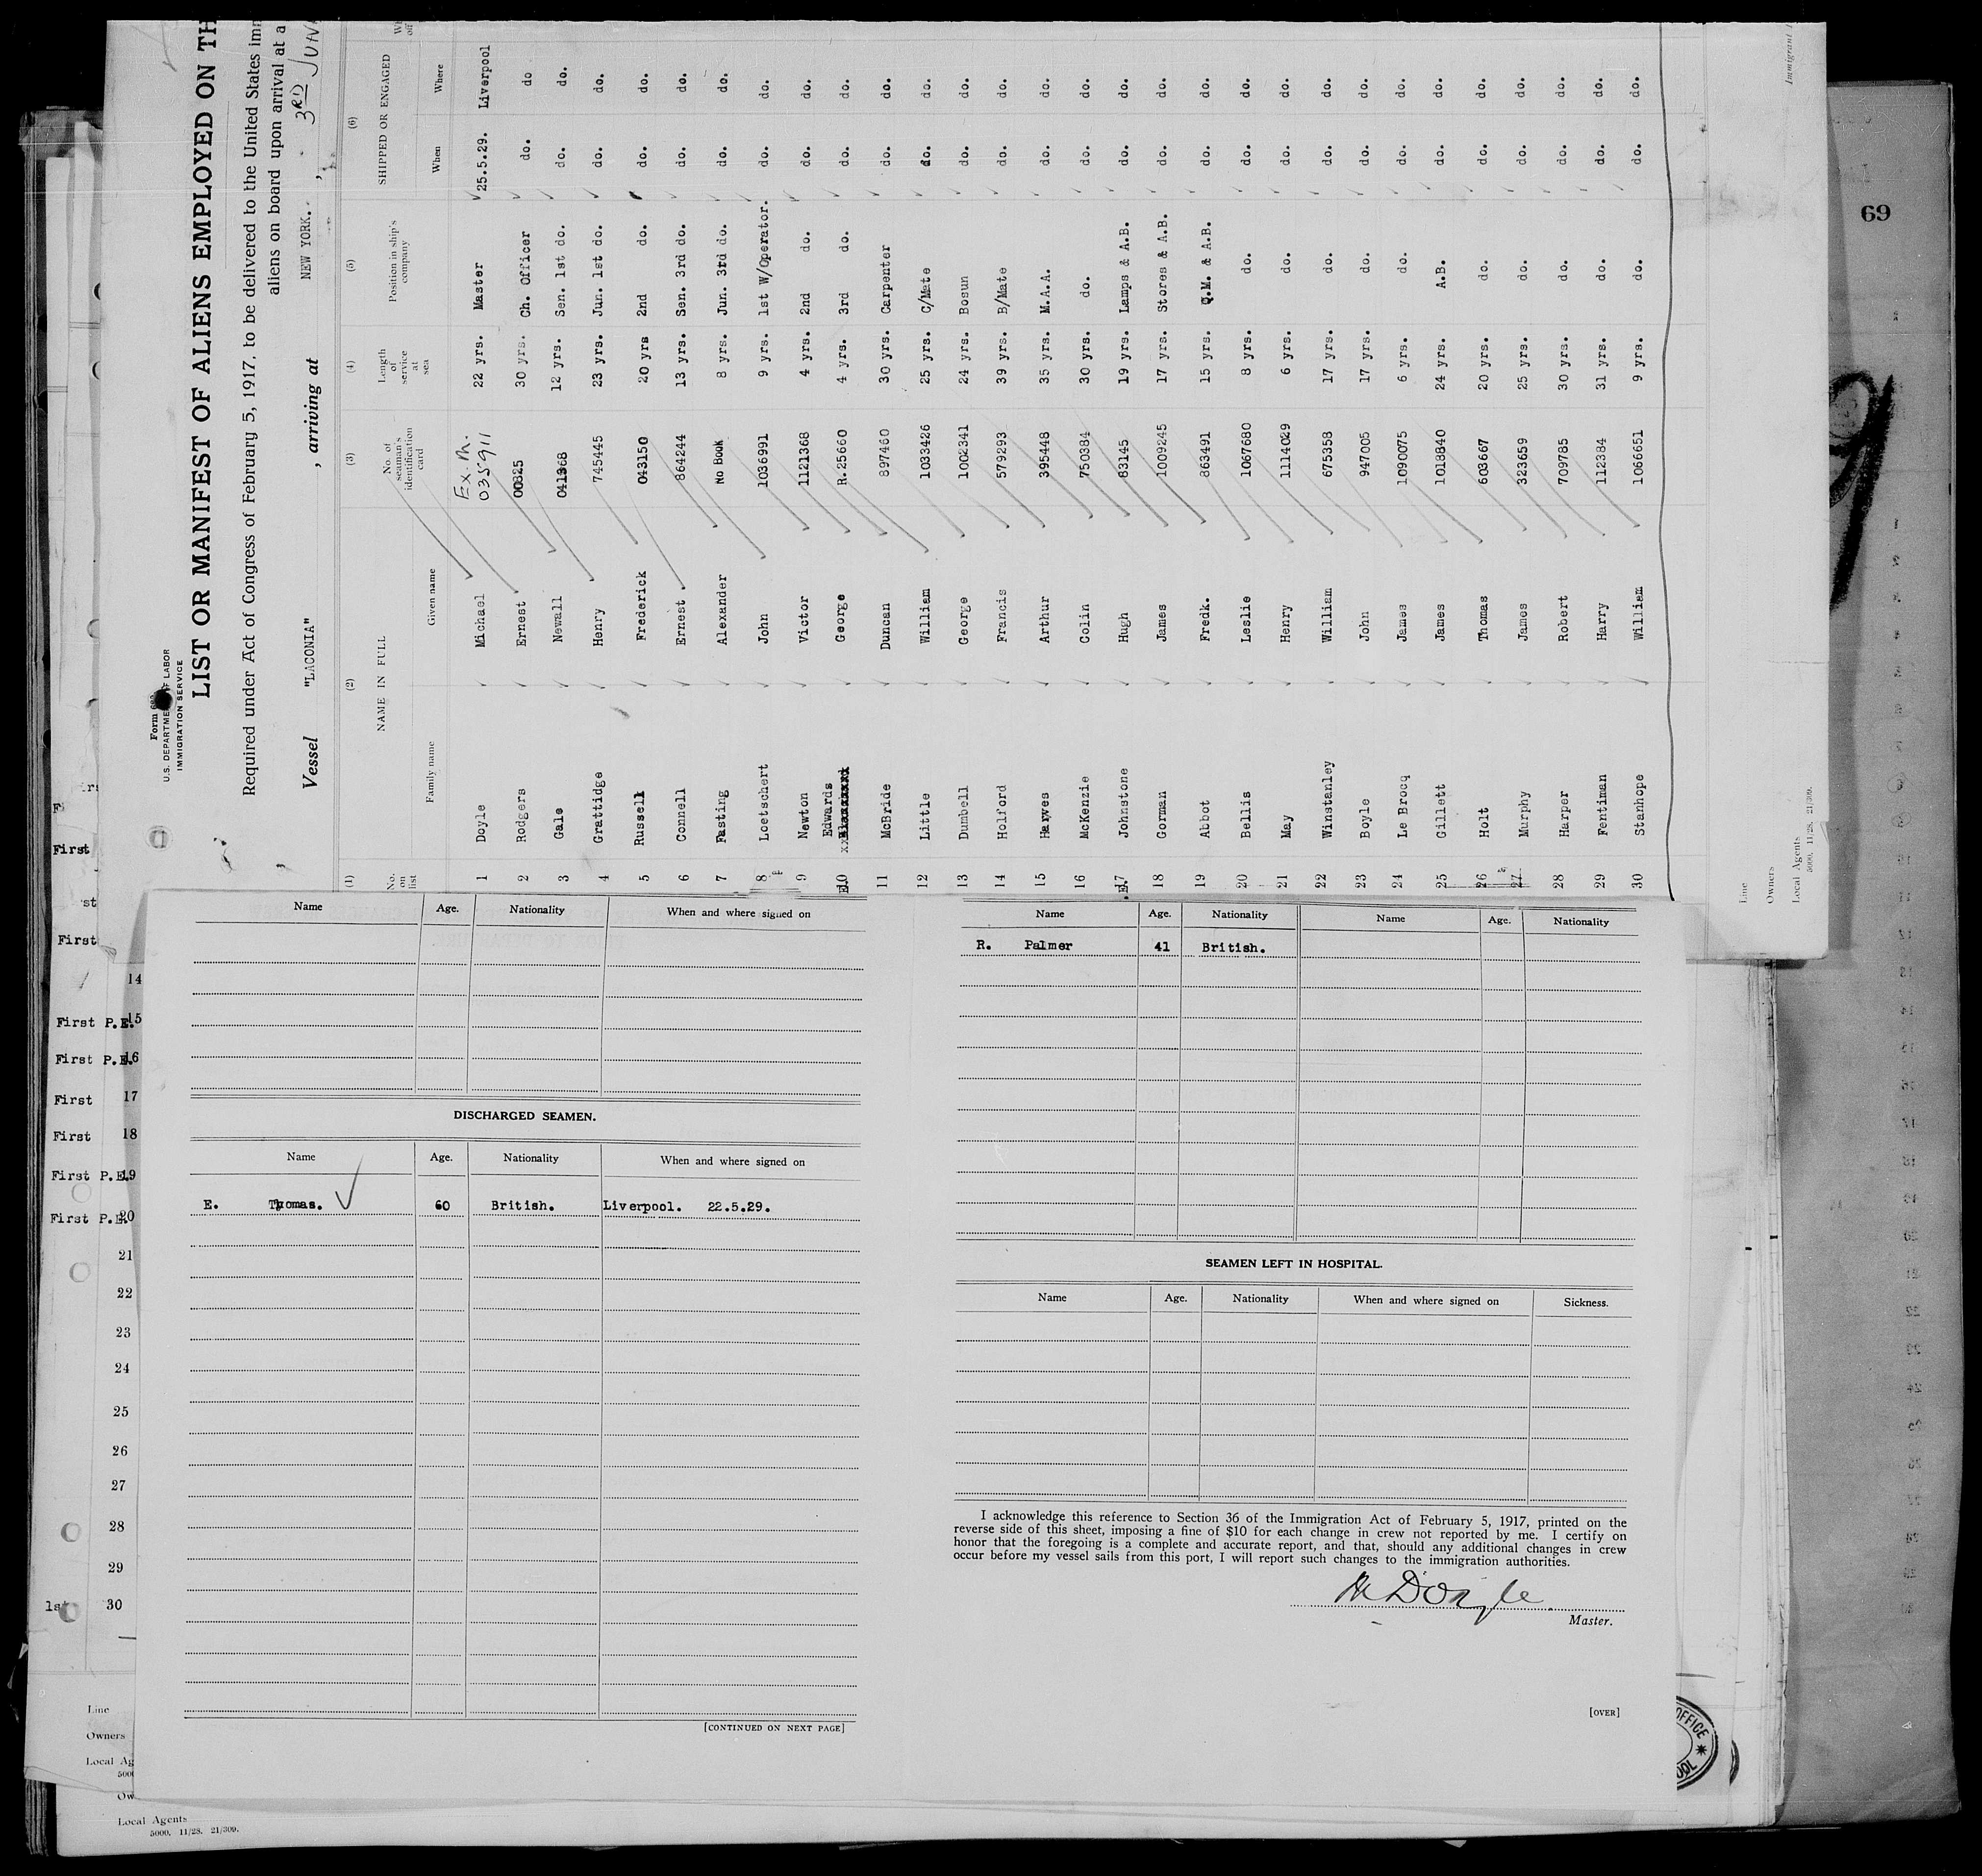 Form 689
U.S. DEPARTMENT OF LABOR
IMMIGRATION SERVICE
LIST OR MANIFEST OF ALIENS EMPLOYED ON TH
Required under Act of Congress of February 5, 1917, to be delivered to the United States imm
aliens on board upon arrival at a
Vessel "LACONIA" , arriving at NEW YORK. , 3RD JUN
(1) (2) (3) (4) (5) (6)
No. on list NAME IN FULL No. of seaman's identification card Length of service at sea Position in ship's company SHIPPED OR ENGAGED
Family name Given name When Where
1 Doyle Michael Ex. M. 035911 22 yrs. Master 25.5.29. Liverpool
2 Rodgers Ernest 00825 30 yrs. Ch. Officer do. do
3 Gale Newall 041368 12 yrs. Sen. 1st do. do. do.
4 Grattidge Henry 745445 23 yrs. Jun. 1st do. do. do.
5 Russell Frederick 043150 20 yrs 2nd do. do. do.
6 Connell Ernest 864244 13 yrs. Sen. 3rd do. do. do.
7 Fasting Alexander No Book 8 yrs. Jun. 3rd do. do. do.
8 Loetschert John 1036991 9 yrs. 1st W/Operator. do. do.
9 Newton Victor 1121368 4 yrs. 2nd do. do. do.
10 Edwards George R.25660 4 yrs. 3rd do. do. do.
11 McBride Duncan 897460 30 yrs. Carpenter do. do.
12 Little William 1033426 25 yrs. C/Mate do. do.
13 Dumbell George 1002341 24 yrs. Bosun do. do.
14 Holford Francis 579293 39 yrs. B/Mate do. do.
15 Harves Arthur 395448 35 yrs. M.A.A. do. do.
16 McKenzie Colin 750384 30 yrs. do. do. do.
17 Johnstone Hugh 83145 19 yrs. Lamps & A.B. do. do.
18 Gorman James 1009245 17 yrs. Stores & A.B. do. do.
19 Abbot Fredk. 863491 15 yrs. Q.M. & A.B. do. do.
20 Bellis Leslie 1067680 8 yrs. do. do. do.
21 May Henry 1114029 6 yrs. do. do. do.
22 Winstanley William 675358 17 yrs. do. do. do.
23 Boyle John 947005 17 yrs. do. do. do.
24 Le Brocq James 1090075 6 yrs. do. do. do.
25 Gillett James 1018840 24 yrs. A.B. do. do.
26 Holt Thomas 603667 20 yrs. do. do. do.
27 Murphy James 323659 25 yrs. do. do. do.
28 Harper Robert 709785 30 yrs. do. do. do.
29 Fentiman Harry 112384 31 yrs. do. do. do.
30 Stanhope William 1066651 9 yrs. do. do. do.
Line
Owners
Local Agents
5000. 11/28. 21/309.
Immigrant
69
First
First
14
First P.E. 15
First P.E. 16
First 17
First 18
First P.E. 19
First P.E. 20
21
22
23
24
25
26
27
28
29
1st 30
Name Age. Nationality When and where signed on
DISCHARGED SEAMEN.
Name Age. Nationality When and where signed on
E. Thomas. 60 British. Liverpool. 22.5.29.
[CONTINUED ON NEXT PAGE]
Name Age. Nationality Name Age. Nationality
R. Palmer 41 British.
SEAMEN LEFT IN HOSPITAL.
Name Age. Nationality When and where signed on Sickness.
I acknowledge this reference to Section 36 of the Immigration Act of February 5, 1917, printed on the
reverse side of this sheet, imposing a fine of $10 for each change in crew not reported by me. I certify on
honor that the foregoing is a complete and accurate report, and that, should any additional changes in crew
occur before my vessel sails from this port, I will report such changes to the immigration authorities.
M Doyle
Master.
[OVER]
OFFICE
Line
Owners
Local Ag
Ow
Local Agents
5000. 11/28. 21/309.